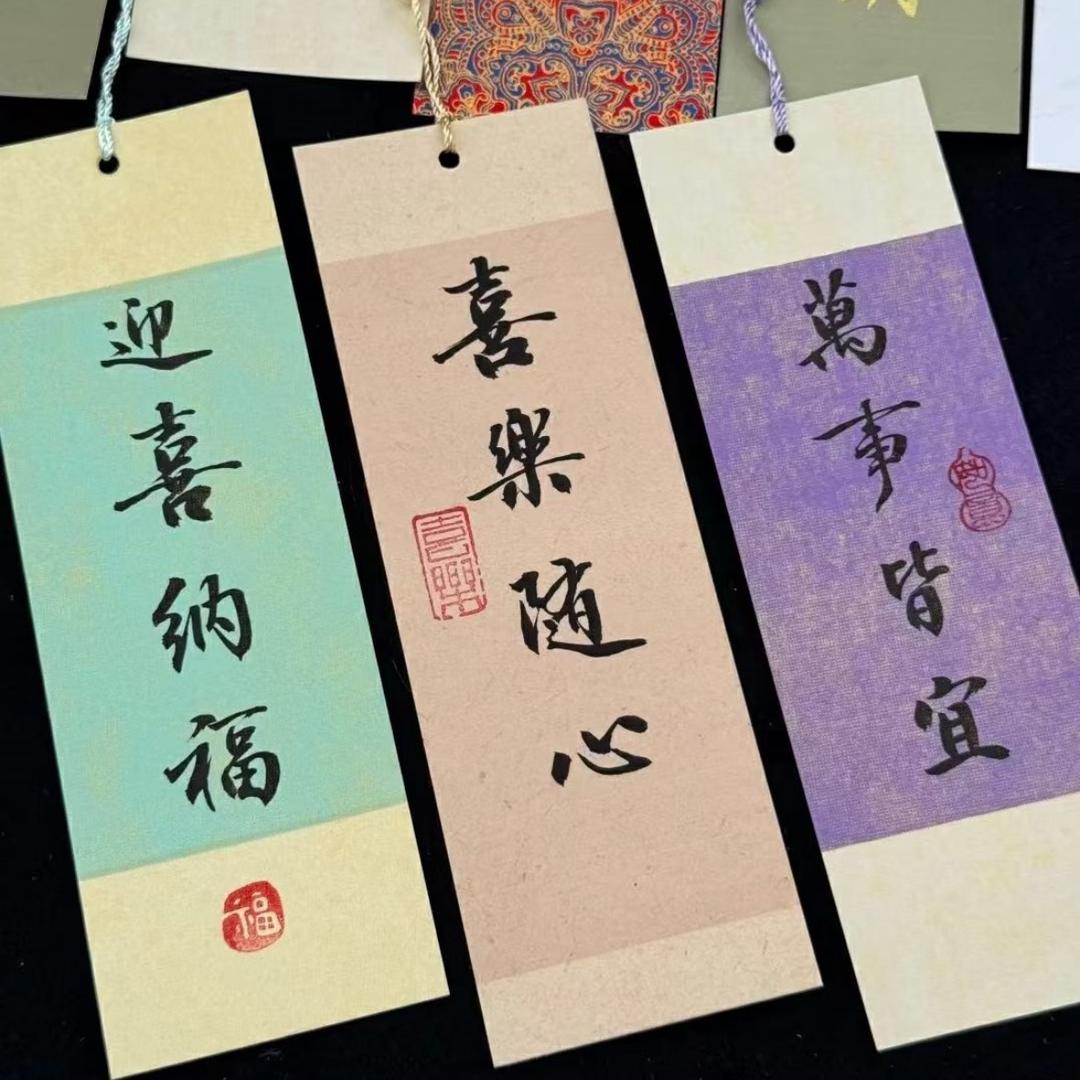 迎喜納福
福
喜樂随心
喜樂
萬事皆宜